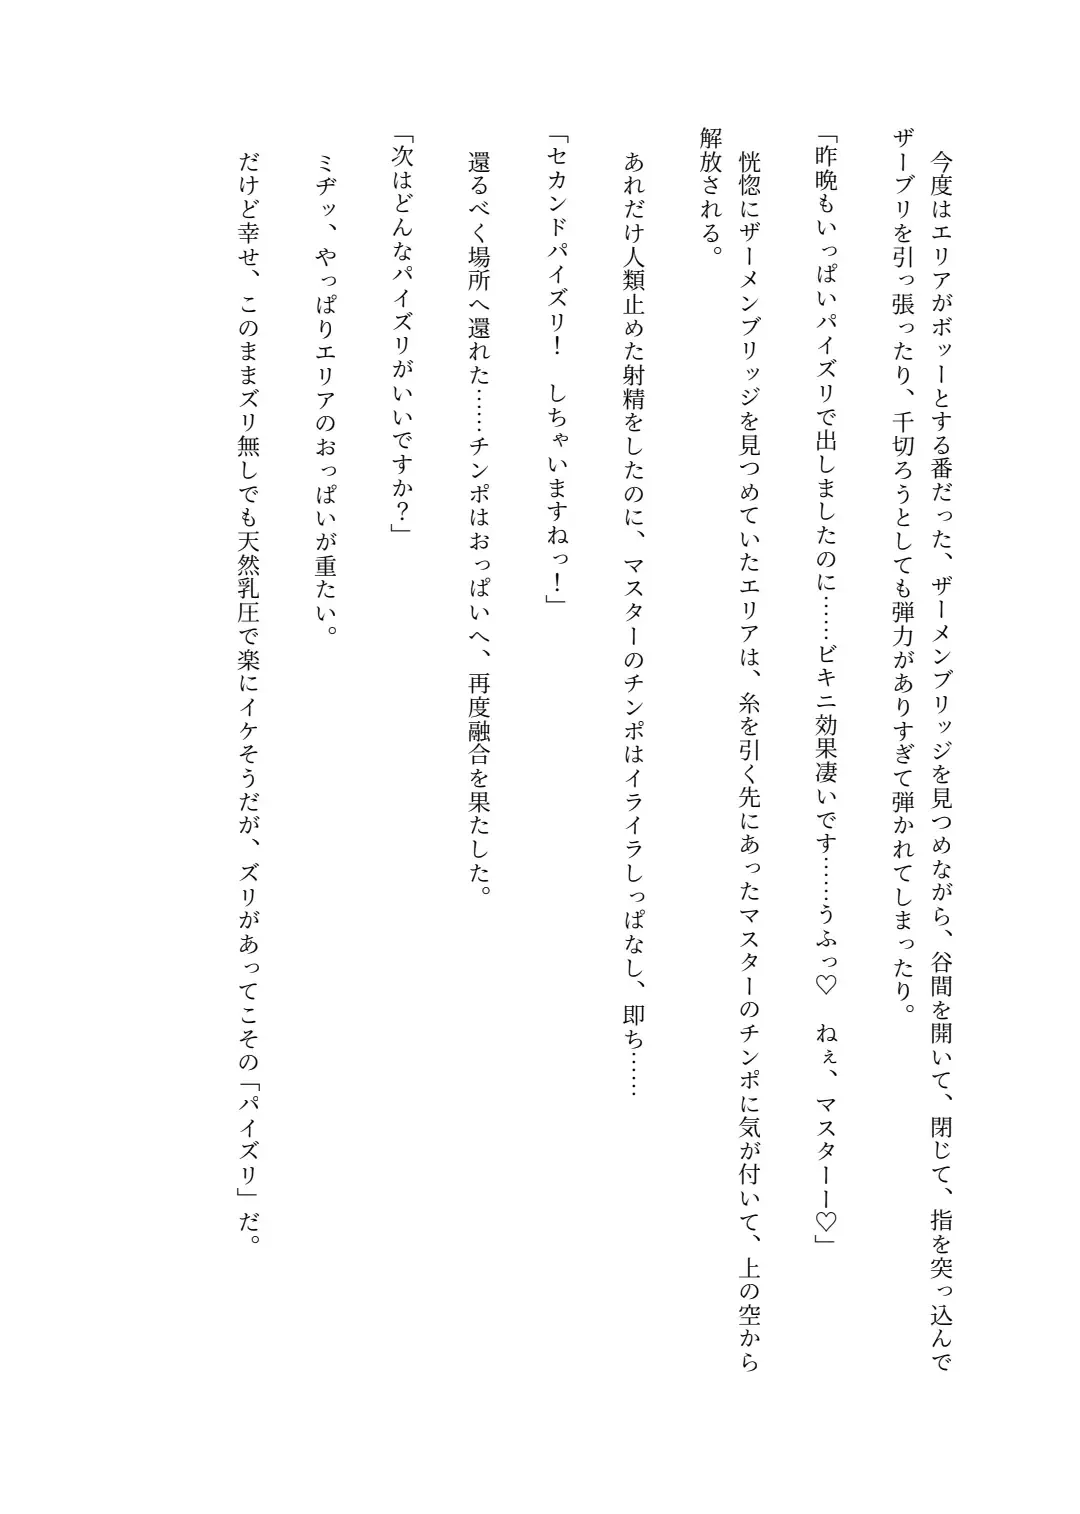 今度はエリアがボッーとする番だった、ザーメンブリッジを見つめながら、谷間を開いて、閉じて、指を突っ込んで
ザーブリを引っ張ったり、千切ろうとしても弾力がありすぎて弾かれてしまったり。
「昨晩もいっぱいパイズリで出しましたのに……ビキニ効果凄いです……うふっ♡　ねぇ、マスターー♡」
恍惚にザーメンブリッジを見つめていたエリアは、糸を引く先にあったマスターのチンポに気が付いて、上の空から
解放される。
あれだけ人類止めた射精をしたのに、マスターのチンポはイライラしっぱなし、即ち……
「セカンドパイズリ！　しちゃいますねっ！」
還るべく場所へ還れた……チンポはおっぱいへ、再度融合を果たした。
「次はどんなパイズリがいいですか？」
ミヂッ、やっぱりエリアのおっぱいが重たい。
だけど幸せ、このままズリ無しでも天然乳圧で楽にイケそうだが、ズリがあってこその「パイズリ」だ。